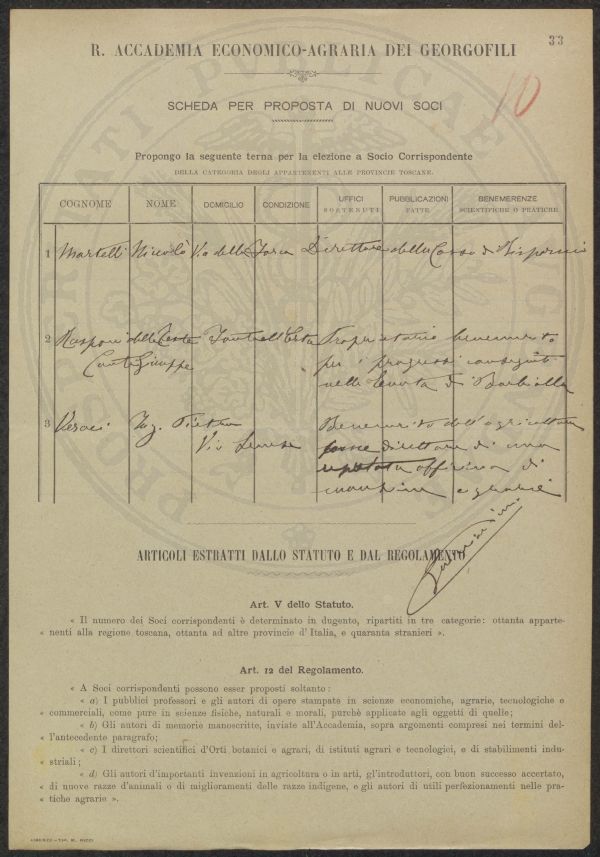 33
R. ACCADEMIA ECONOMICO-AGRARIA DEI GEORGOFILI
10
SCHEDA PER PROPOSTA DI NUOVI SOCI
Propongo la seguente terna per la elezione a Socio Corrispondente
DELLA CATEGORIA DEGLI APPARTENENTI ALLE PROVINCIE TOSCANE.
COGNOME NOME DOMICILIO CONDIZIONE UFFICI SOSTENUTI PUBBLICAZIONI FATTE BENEMERENZE SCIENTIFICHE O PRATICHE
1 Martelli Niccolò Via della Forca Direttore della Cassa di Risparmio
2 Rasponi delle Teste Proprietario benemerito
Conte Giuseppe per i progressi conseguiti
nella tenuta di Barbialla
3 Veraci Ing. Pietro Benemerito dell'agricoltura
Via direttore di una
officina di
macchine agrarie
ARTICOLI ESTRATTI DALLO STATUTO E DAL REGOLAMENTO
Art. V dello Statuto.
« Il numero dei Soci corrispondenti è determinato in dugento, ripartiti in tre categorie: ottanta apparte-
« nenti alla regione toscana, ottanta ad altre provincie d'Italia, e quaranta stranieri ».
Art. 12 del Regolamento.
« A Soci corrispondenti possono esser proposti soltanto:
« a) I pubblici professori e gli autori di opere stampate in scienze economiche, agrarie, tecnologiche e
« commerciali, come pure in scienze fisiche, naturali e morali, purchè applicate agli oggetti di quelle;
« b) Gli autori di memorie manoscritte, inviate all'Accademia, sopra argomenti compresi nei termini del-
« l'antecedente paragrafo;
« c) I direttori scientifici d'Orti botanici e agrari, di istituti agrari e tecnologici, e di stabilimenti indu-
« striali;
« d) Gli autori d'importanti invenzioni in agricoltura o in arti, gl'introduttori, con buon successo accertato,
« di nuove razze d'animali o di miglioramenti delle razze indigene, e gli autori di utili perfezionamenti nelle pra-
« tiche agrarie ».